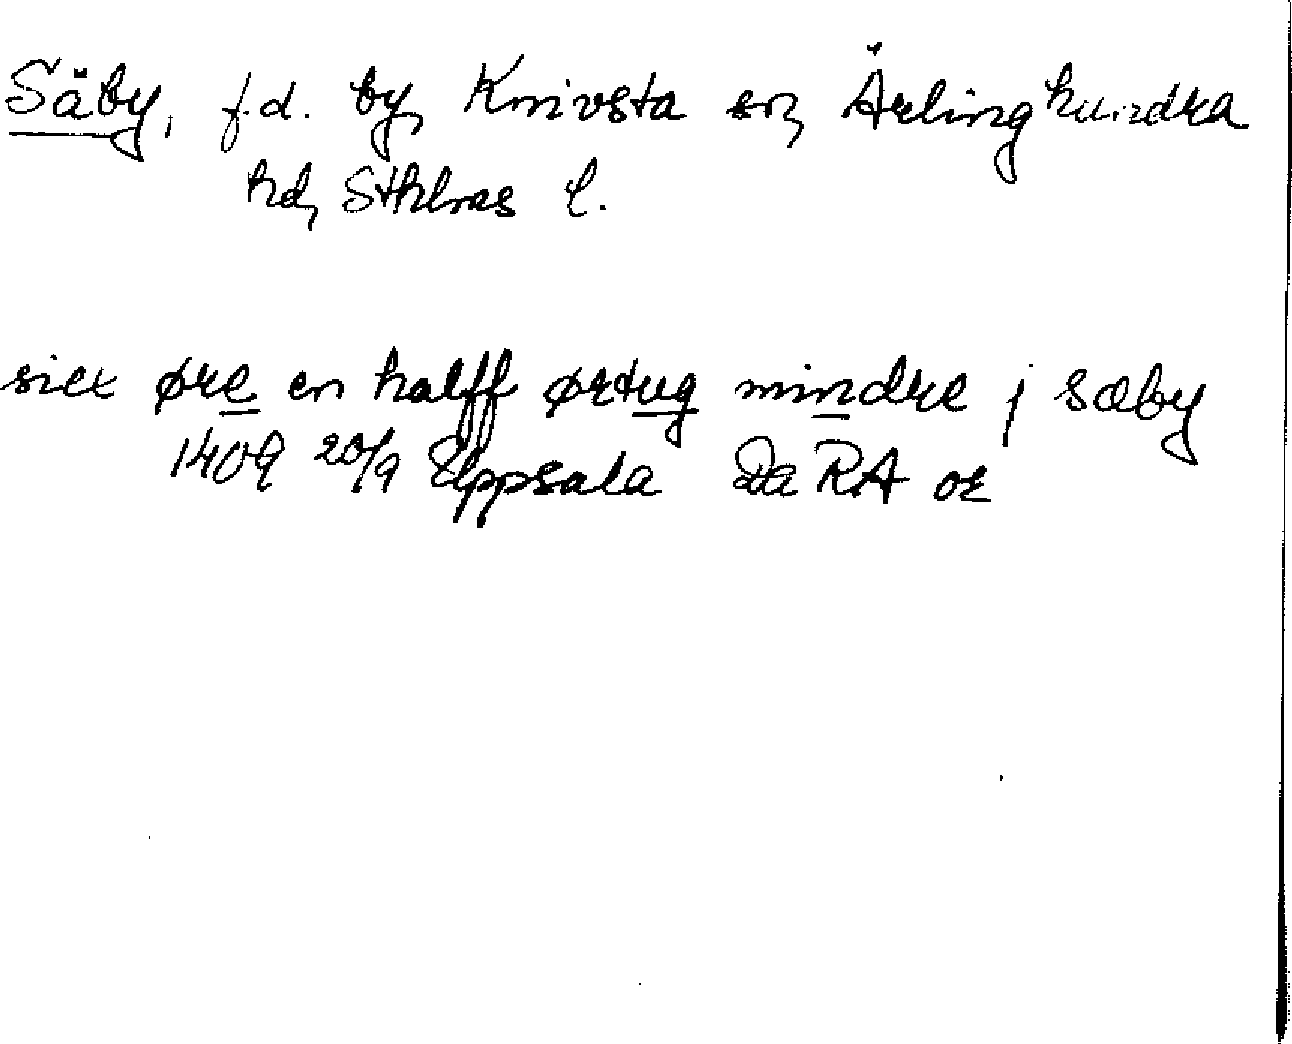 Säby, f.d. by, Knivsta sn, Ärlinghundra
hd, Sthlms l.
siex øre en halff ørtug mindre j sæby
1409 20/9 Uppsala Da RA or